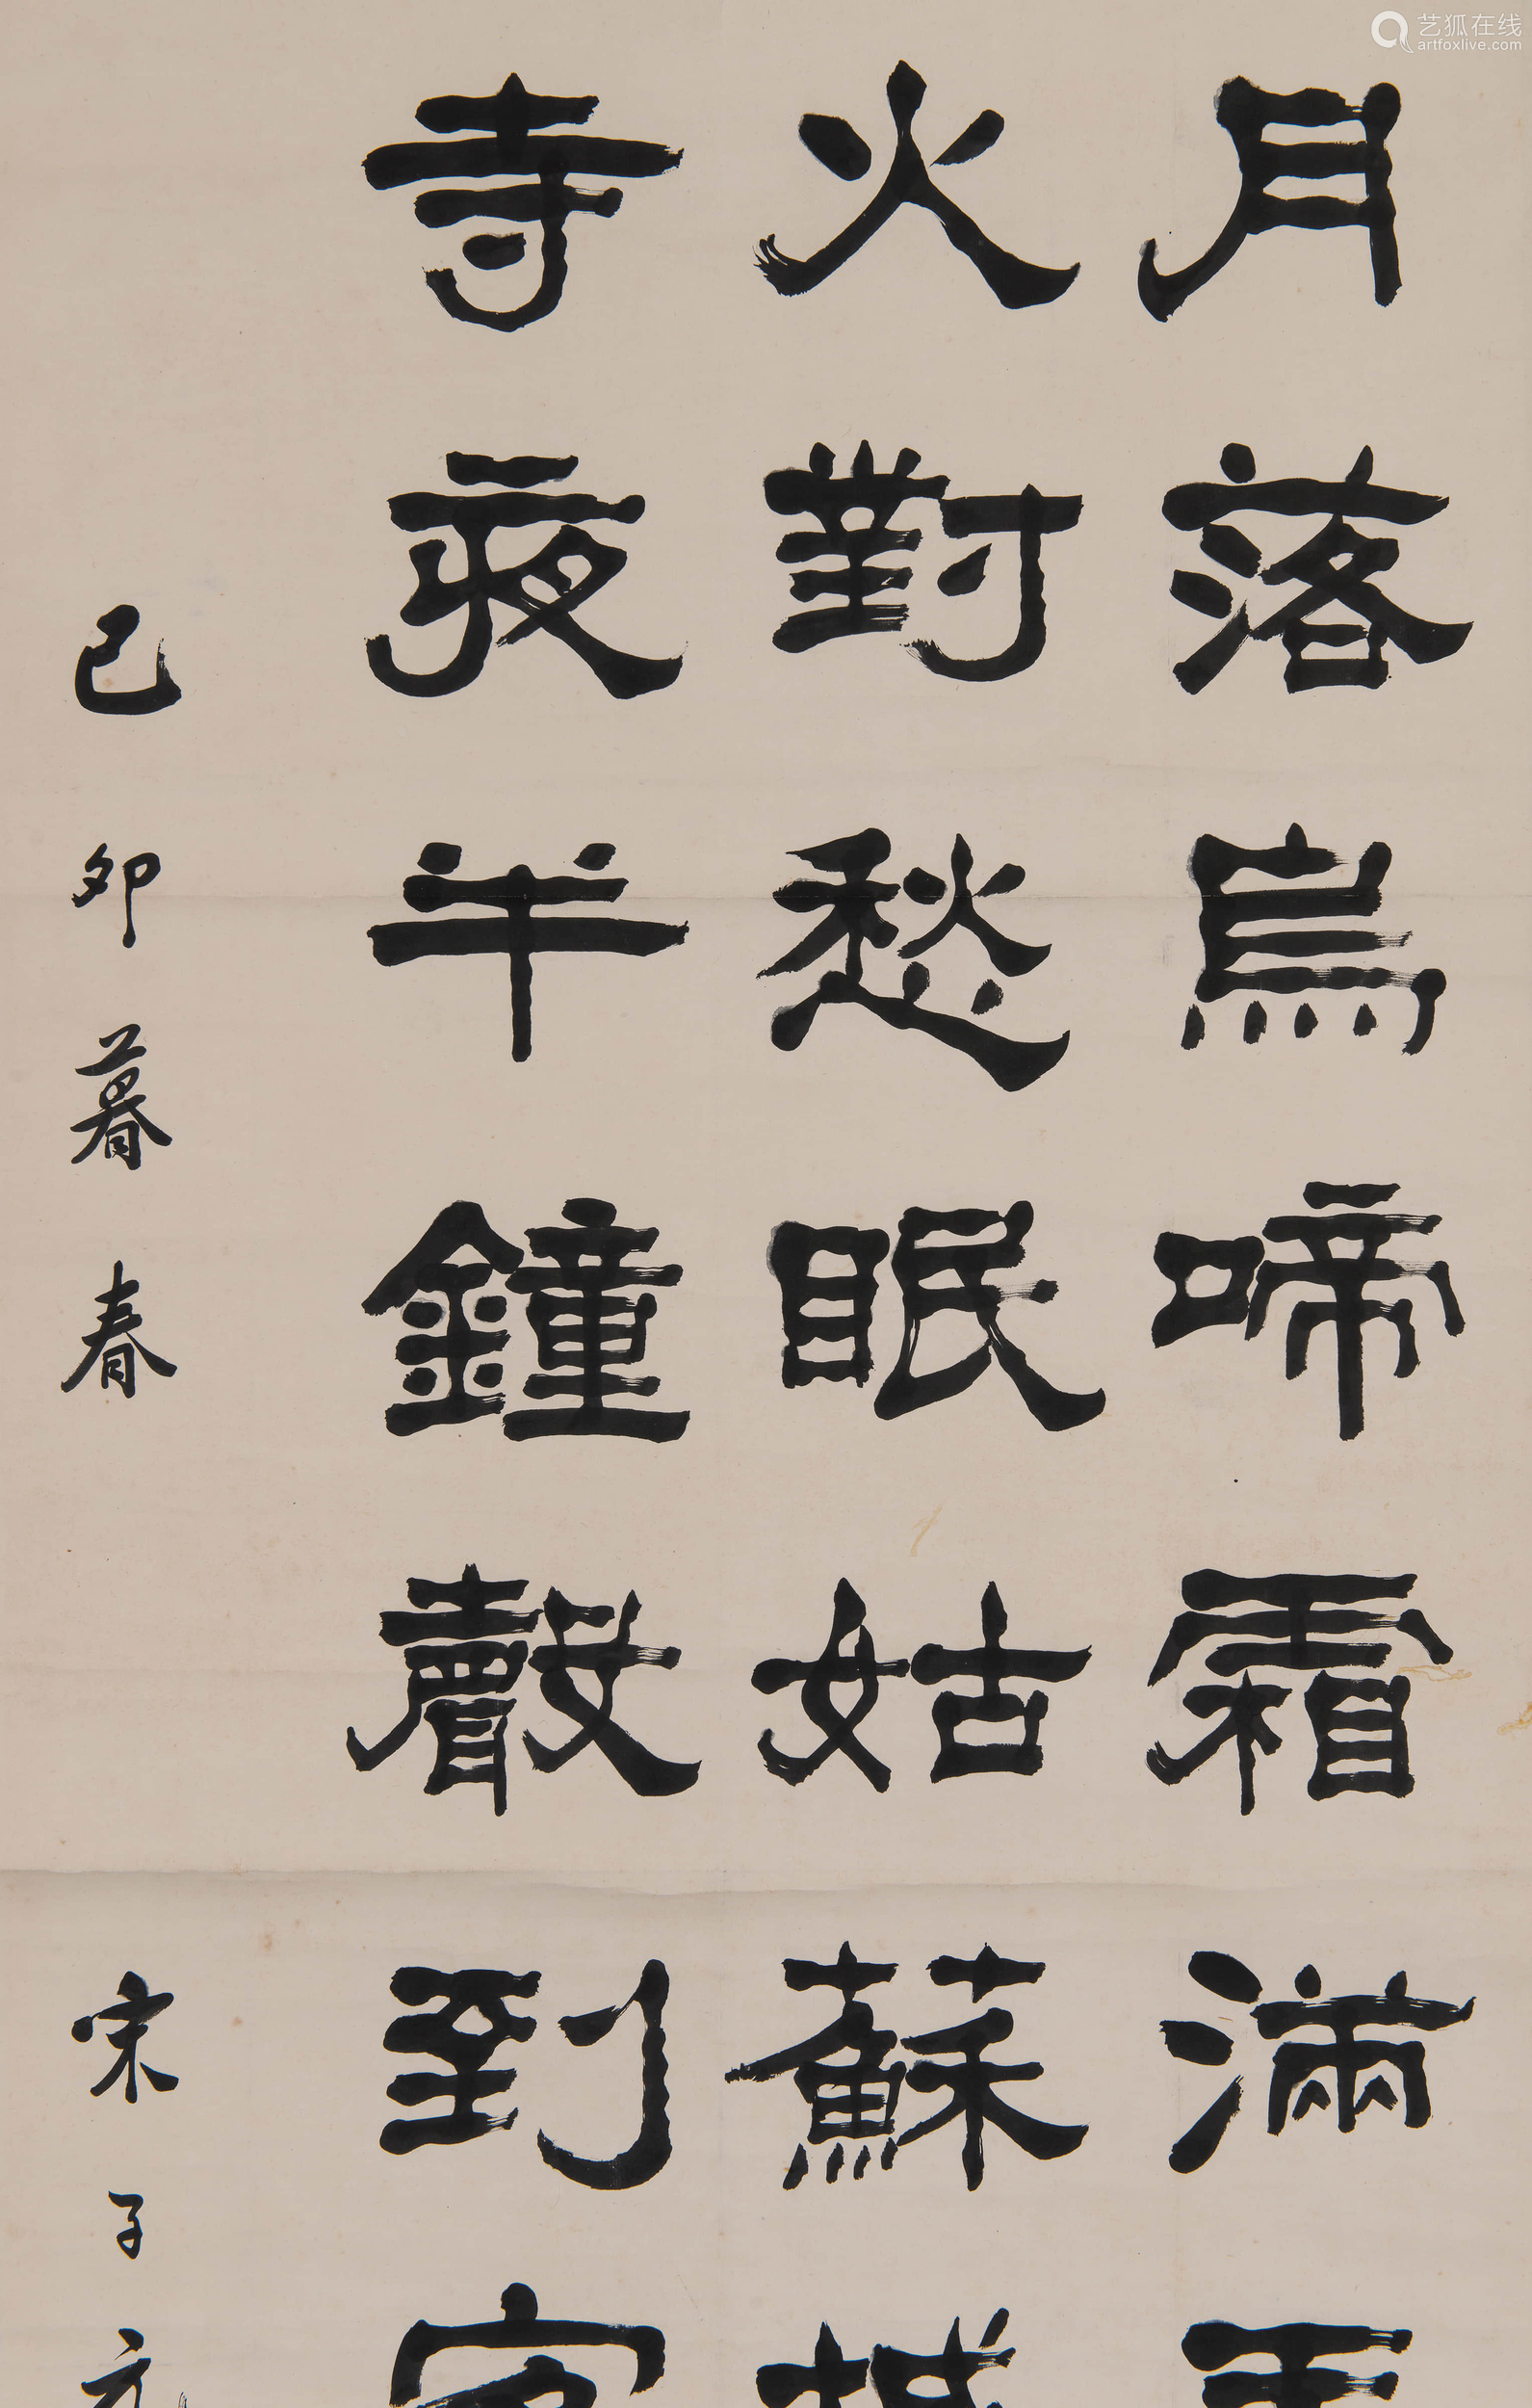 艺狐在线
artfoxlive.com
月落烏啼霜滿
火對愁眠姑蘇
寺夜半鐘聲到
己卯暮春 宋子